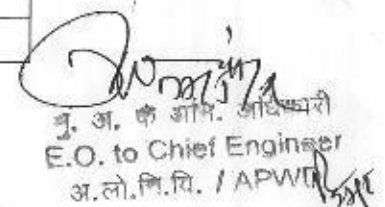 मु. अ. के अभि. अधिकारी
E.O. to Chief Engineer
अ.लो.नि.वि. / APWD